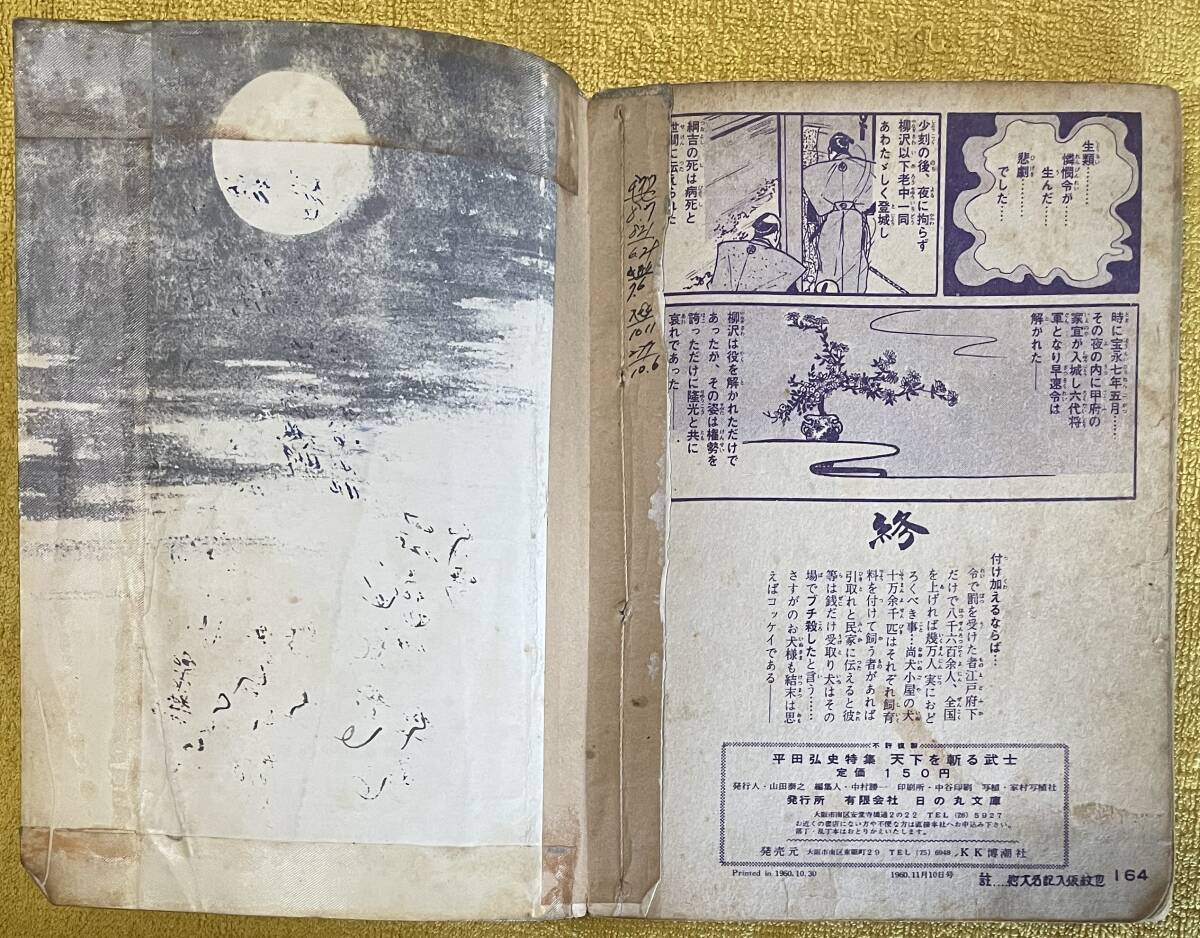 生類………
憐憫令が……
生んだ……
悲劇………
でした……
少刻の後、夜に拘らず
柳沢以下老中一同
あわたゞしく登城し
綱吉の死は病死と
世間に伝えられた
時に宝永七年五月……
その夜の内に甲府の
家宣が入城し六代将
軍となり早速令は
解かれた――
柳沢は役を解かれただけで
あったが、その姿は権勢を
誇っただけに隆光と共に
哀れであった――
終
付け加えるならば…
令で罰を受けた者江戸府下
だけで八千六百余人、全国
を上げれば幾万人実におど
ろくべき事…尚犬小屋の犬
十万余千匹はそれぞれ飼育
料を付けて飼う者があれば
引取れと民家に伝えると彼
等は銭だけ受取り犬はその
場でブチ殺したと言う……
さすがのお犬様も結末は思
えばコッケイである――
不許複製
平田弘史特集 天下を斬る武士
定価 150円
発行人・山田泰之 編集人・中村勝一 印刷所・中谷印刷 写植・家村写植社
発行所 有限会社 日の丸文庫
大阪市南区安堂寺橋通2の22 TEL (26) 5927
お近くの書店にない方や不便な方は直接本社へお申込み下さい。
落丁・乱丁本はおとりかえいたします。
発売元 大阪市南区東賑町29 TEL (75) 6948 KK博潮社
Printed in 1960.10.30
1960.11月10日号
164
817
821
7.6
10.11
10.6